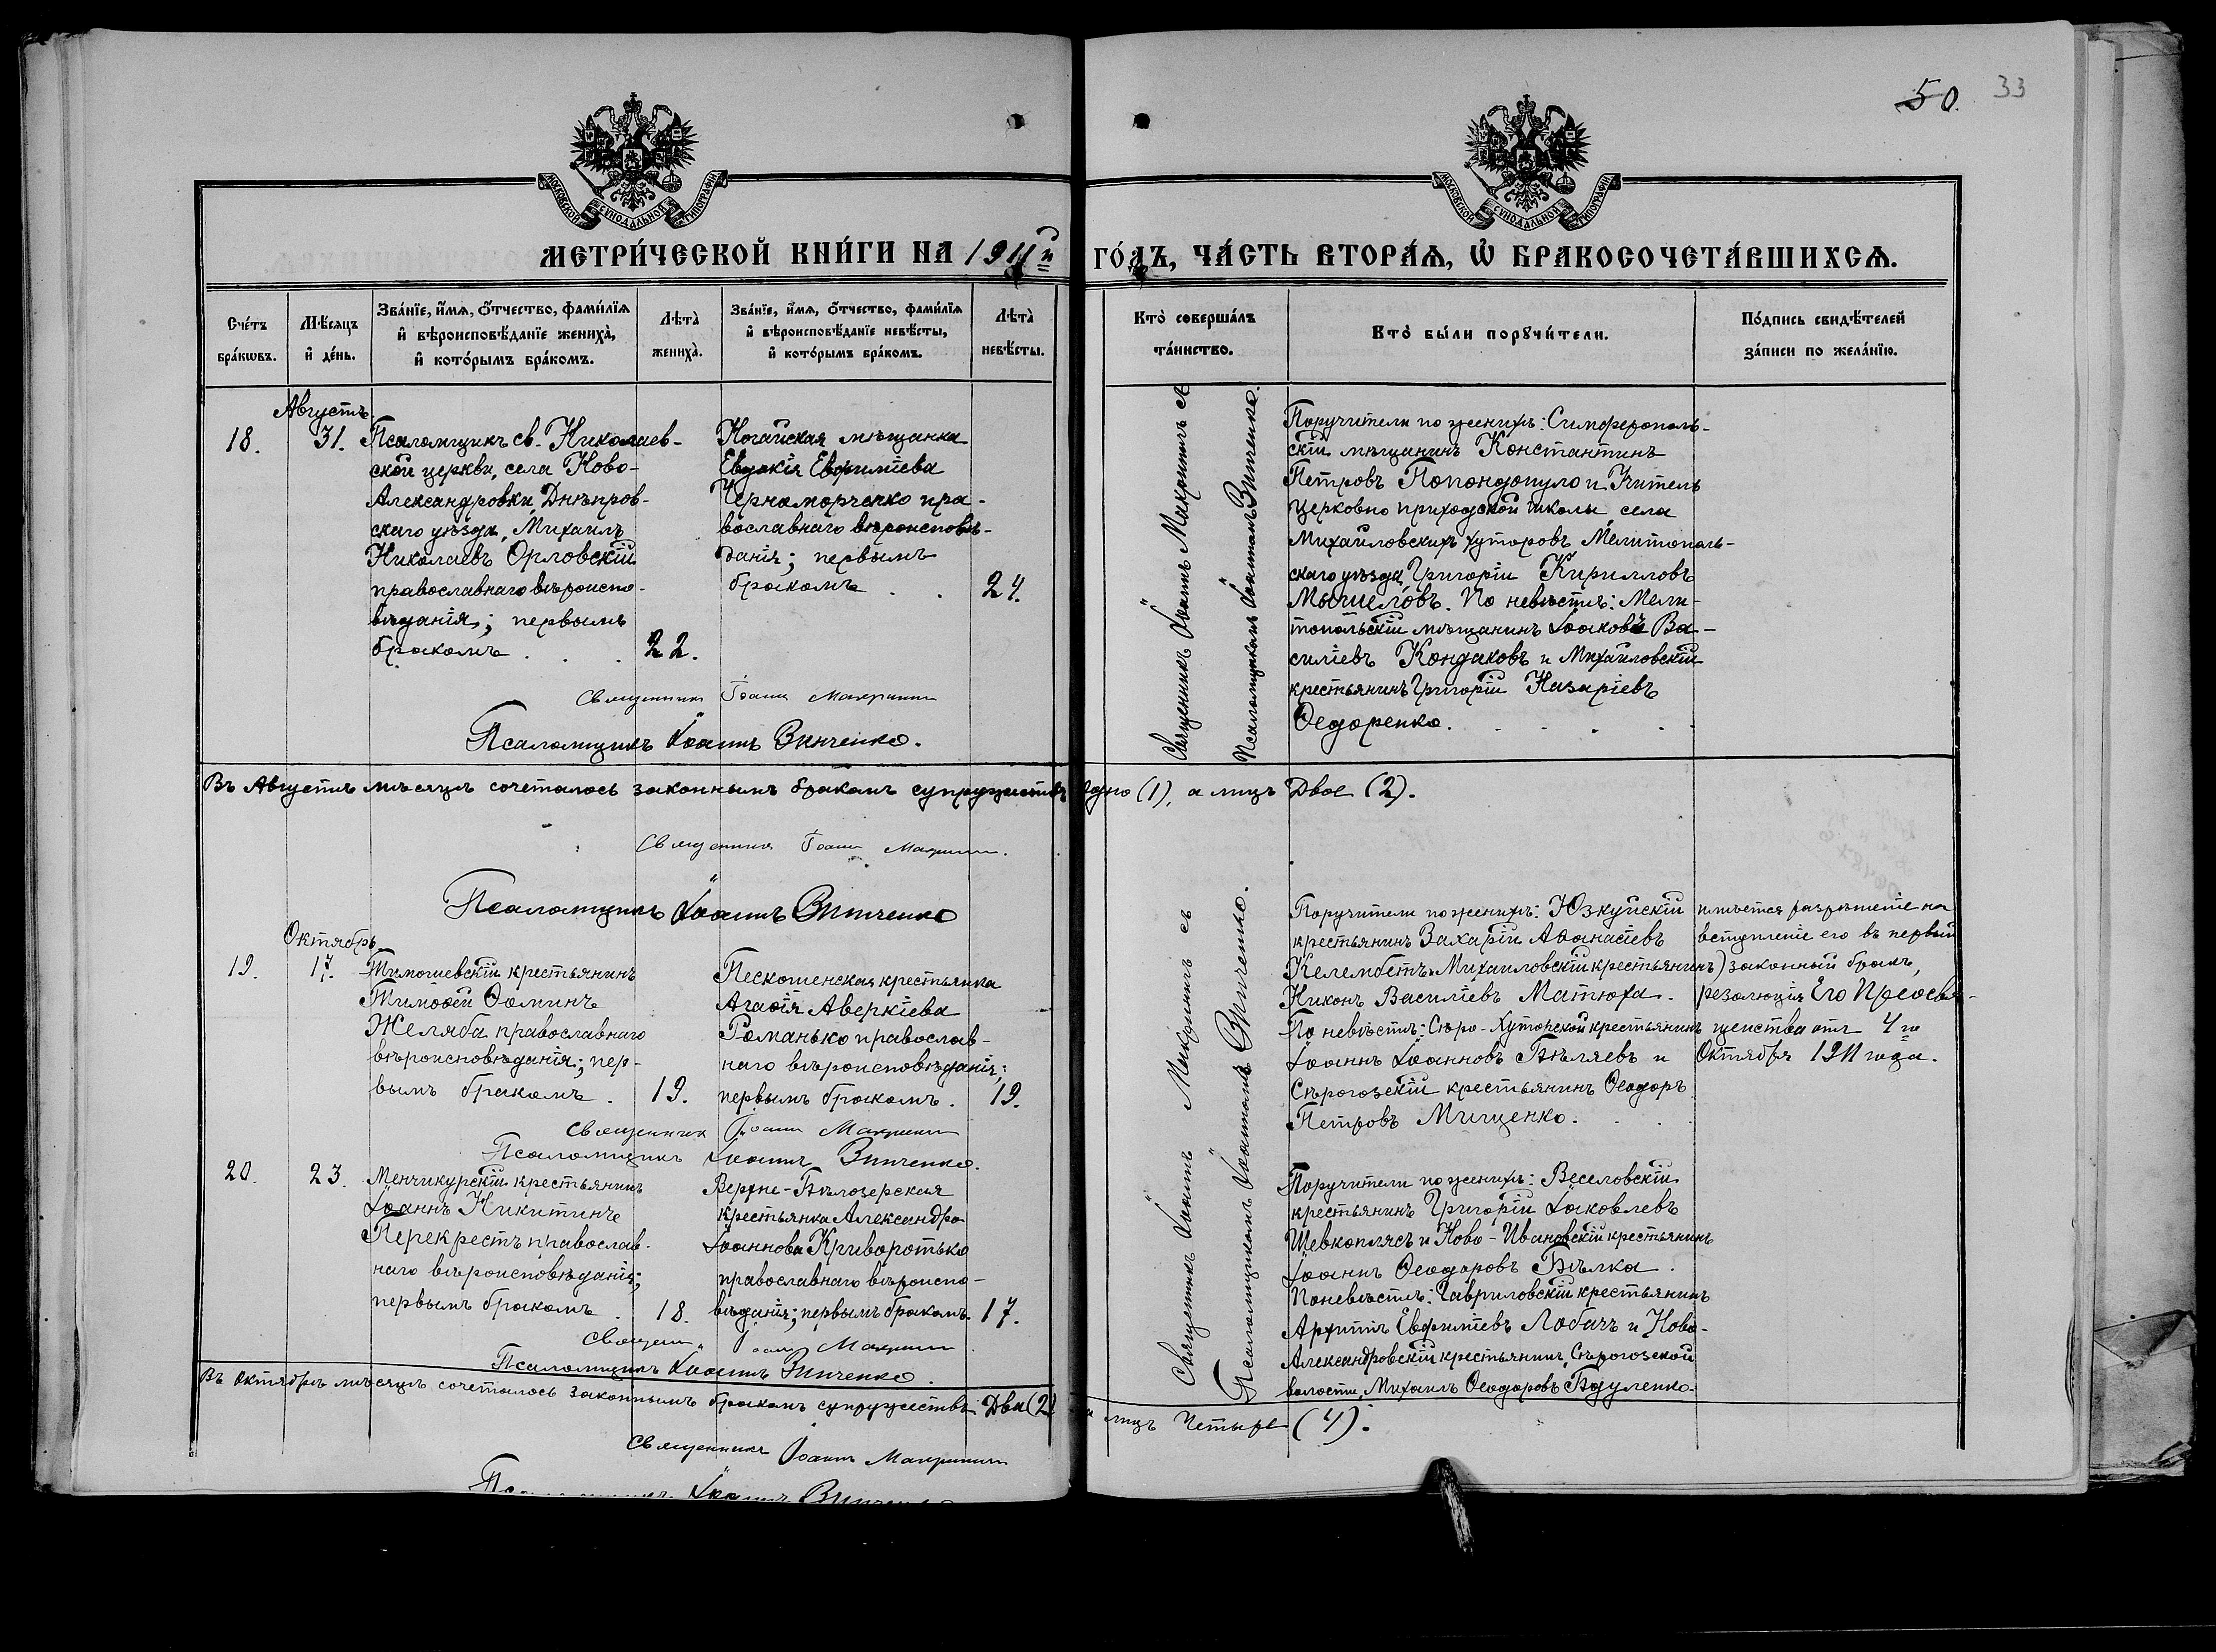 50. 33
МОСКОВСКОЙ СѴНОДАЛЬНОЙ ТИПОГРАФІИ
МОСКОВСКОЙ СѴНОДАЛЬНОЙ ТИПОГРАФІИ
МЕТРИ́ЧЕСКОЙ КНИ́ГИ НА 1911й ГО́ДЪ, ЧА́СТЬ ВТОРА́Ѧ, Ѡ҆ БРАКОСОЧЕТА́ВШИХСѦ.
Сче́тъ бра́кѡвъ.
Мѣ́сяцъ и҆ де́нь.
Зва́нїе, и҆́мѧ, о҆́тчество, фами́лїѧ
и҆ вѣроисповѣ́данїе жениха̀,
и҆ кото́рымъ бра́комъ.
Лѣта̀ жениха̀.
Зва́нїе, и҆́мѧ, о҆́тчество, фами́лїѧ
и҆ вѣроисповѣ́данїе невѣ́сты,
и҆ кото́рымъ бра́комъ.
Лѣта̀ невѣ́сты.
Кто̀ соверша́лъ та́инство.
Кто̀ бы́ли порꙋчи́тели.
По́дпись свидѣ́телей
за́писи по жела́нїю.
Августъ.
18.
31.
Псаломщикъ св. Николаев-
ской церкви, села Ново-
Александровки, Днѣпров-
скаго уѣзда, Михаилъ
Николаевъ Орловскій
православнаго вѣроиспо-
вѣданія; первымъ
бракомъ . . . 22.
Ногайская мѣщанка
Евдокія Евфиміева
Черноморченко пра-
вославнаго вѣроисповѣ-
данія; первымъ
бракомъ . . 24.
Священникъ Іоаннъ Макринъ съ
Псаломщикомъ Іоанномъ Винченко.
Поручители по женихѣ: Симферополь-
скій мѣщанинъ Константинъ
Петровъ Попондопуло и Учитель
церковно приходской школы, села
Михайловскихъ хуторовъ Мелитополь-
скаго уѣзда, Григорій Кирилловъ
По невѣстѣ: Мели-
топольскій мѣщанинъ Іоаковъ Ва-
силіевъ Кондаковъ и Михайловскій
крестьянинъ Григорій Назаріевъ
Ѳедоренко.
Священникъ Іоаннъ Макринъ
Псаломщикъ Іоаннъ Винченко.
Въ Августѣ мѣсяцѣ сочеталось законнымъ бракомъ супружествъ одно (1), а лицъ Двое (2).
Священникъ Іоаннъ Макринъ.
Псаломщикъ Іоаннъ Винченко
Октябрь
19.
17.
Тимошевскій крестьянинъ
Тимоѳей Ѳоминъ
Желяба православнаго
вѣроисповѣданія; пер-
вымъ бракомъ . 19.
Пескошенская крестьянка
Агаѳія Аверкіева
Романько православ-
наго вѣроисповѣданія;
первымъ бракомъ. 19.
Священникъ Іоаннъ Макринъ съ
Псаломщикомъ Іоанномъ Винченко.
Поручители по женихѣ: Юзкуйскій
крестьянинъ Захарій Аѳанасіевъ
Келембетъ и Михайловскій крестьянинъ
Никонъ Василіевъ Матюха.
По невѣстѣ: Сѣро-Хуторской крестьянинъ
Іоаннъ Іоанновъ Бѣляевъ и
Сѣрогозскій крестьянинъ Ѳеодоръ
Петровъ Мищенко.
имѣется разрѣшеніе на
вступленіе его въ первый
законный бракъ,
резолюція Его Преосвя-
щенства отъ 4 го
Октября 1911 года.
Священникъ Іоаннъ Макринъ
Псаломщикъ Іоаннъ Винченко.
20.
23.
Менчикурскій крестьянинъ
Іоаннъ Никитинъ
Перекрестъ православ-
наго вѣроисповѣданія;
первымъ бракомъ . 18.
Верхне-Бѣлозерская
крестьянка Александра
Іоаннова Криворотько
православнаго вѣроиспо-
вѣданія; первымъ бракомъ. 17.
Поручители по женихѣ: Веселовскій
крестьянинъ Григорій Іаковлевъ
Шевкоплясъ и Ново-Ивановскій крестьянинъ
Іоаннъ Ѳеодоровъ Бѣлка.
По невѣстѣ: Гавриловскій крестьянинъ
Архиппъ Евфиміевъ Лобачъ и Ново-
Александровскій крестьянинъ, Сѣрогозской
волости, Михаилъ Ѳеодоровъ Бдуленко.
Священникъ Іоаннъ Макринъ
Псаломщикъ Іоаннъ Винченко.
Въ Октябрѣ мѣсяцѣ сочеталось законнымъ бракомъ супружествъ Два (2) а лицъ Четыре (4).
Священникъ Іоаннъ Макринъ
Псаломщикъ Іоаннъ Винченко